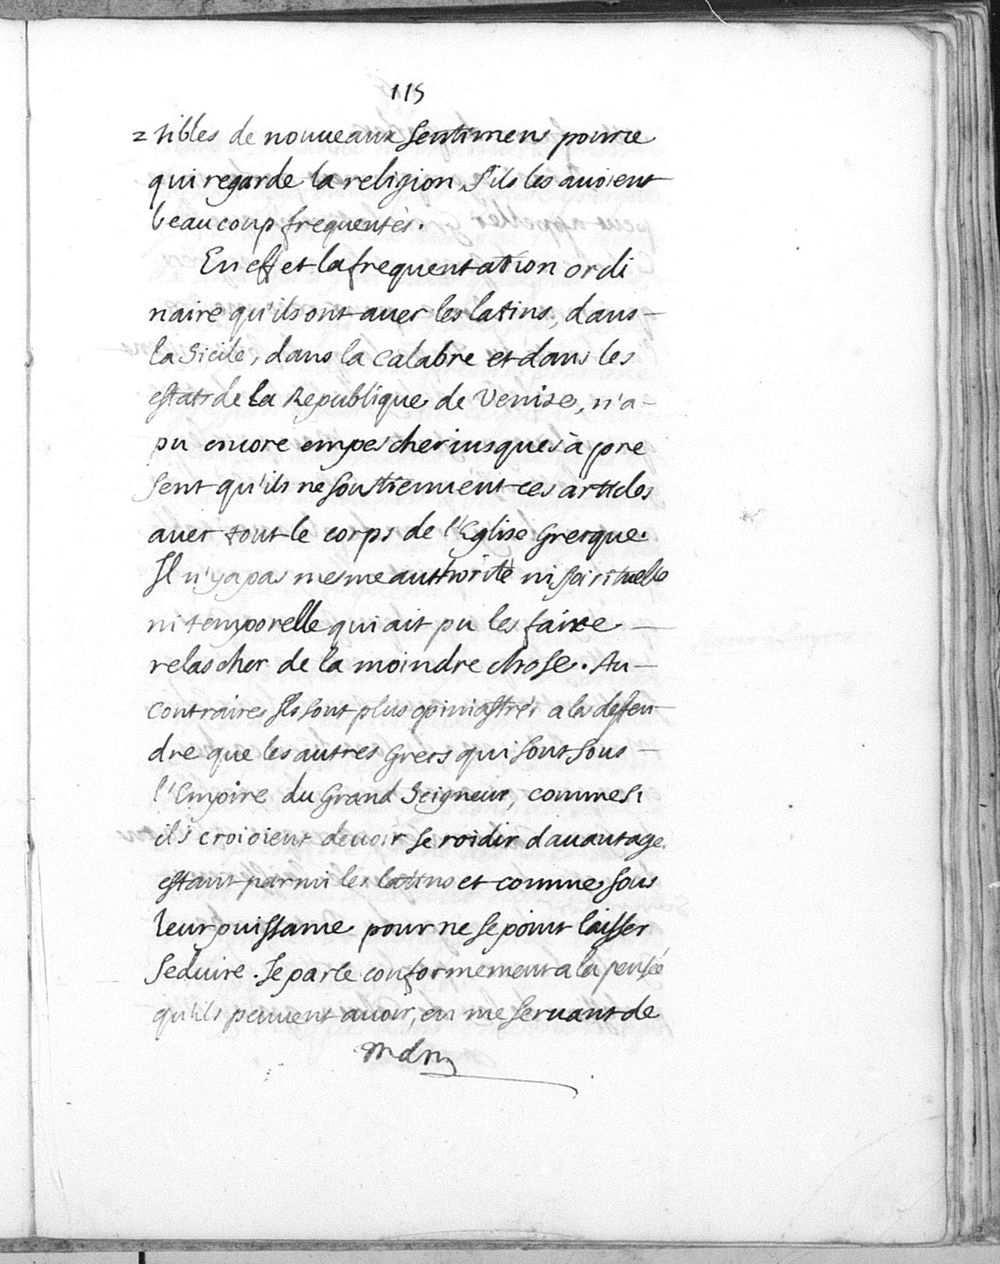 115
tibles de nouueaux sentimens pource
qui regarde la religion, s'ils les auoient
beaucoup frequentes.
En effet la frequentation ordi
naire qu'ils ont auec les latins, dans
la Sicile, dans la Calabre et dans les
estats de la Republique de Venise, n'a
pu encore empescher iusques à pre
sent qu'ils ne soustiennent ces articles
auec tout le corps de l'Eglise Grecque.
Il n'y a pas mesme authorité ni spirituelle
ni temporelle qui ait pu les faire
relascher de la moindre chose. Au
contraires ils sont plus opiniastrés a les defen
dre que les autres Grecs qui sont sous
l'Empire du Grand Seigneur, comme si
ils croioient deuoir se roidir dauantage
estant parmi les latins et comme sous
leur puissance pour ne se point laisser
seduire. Je parle conformement a la pensée
qu'ils peuuent auoir, en me seruant de